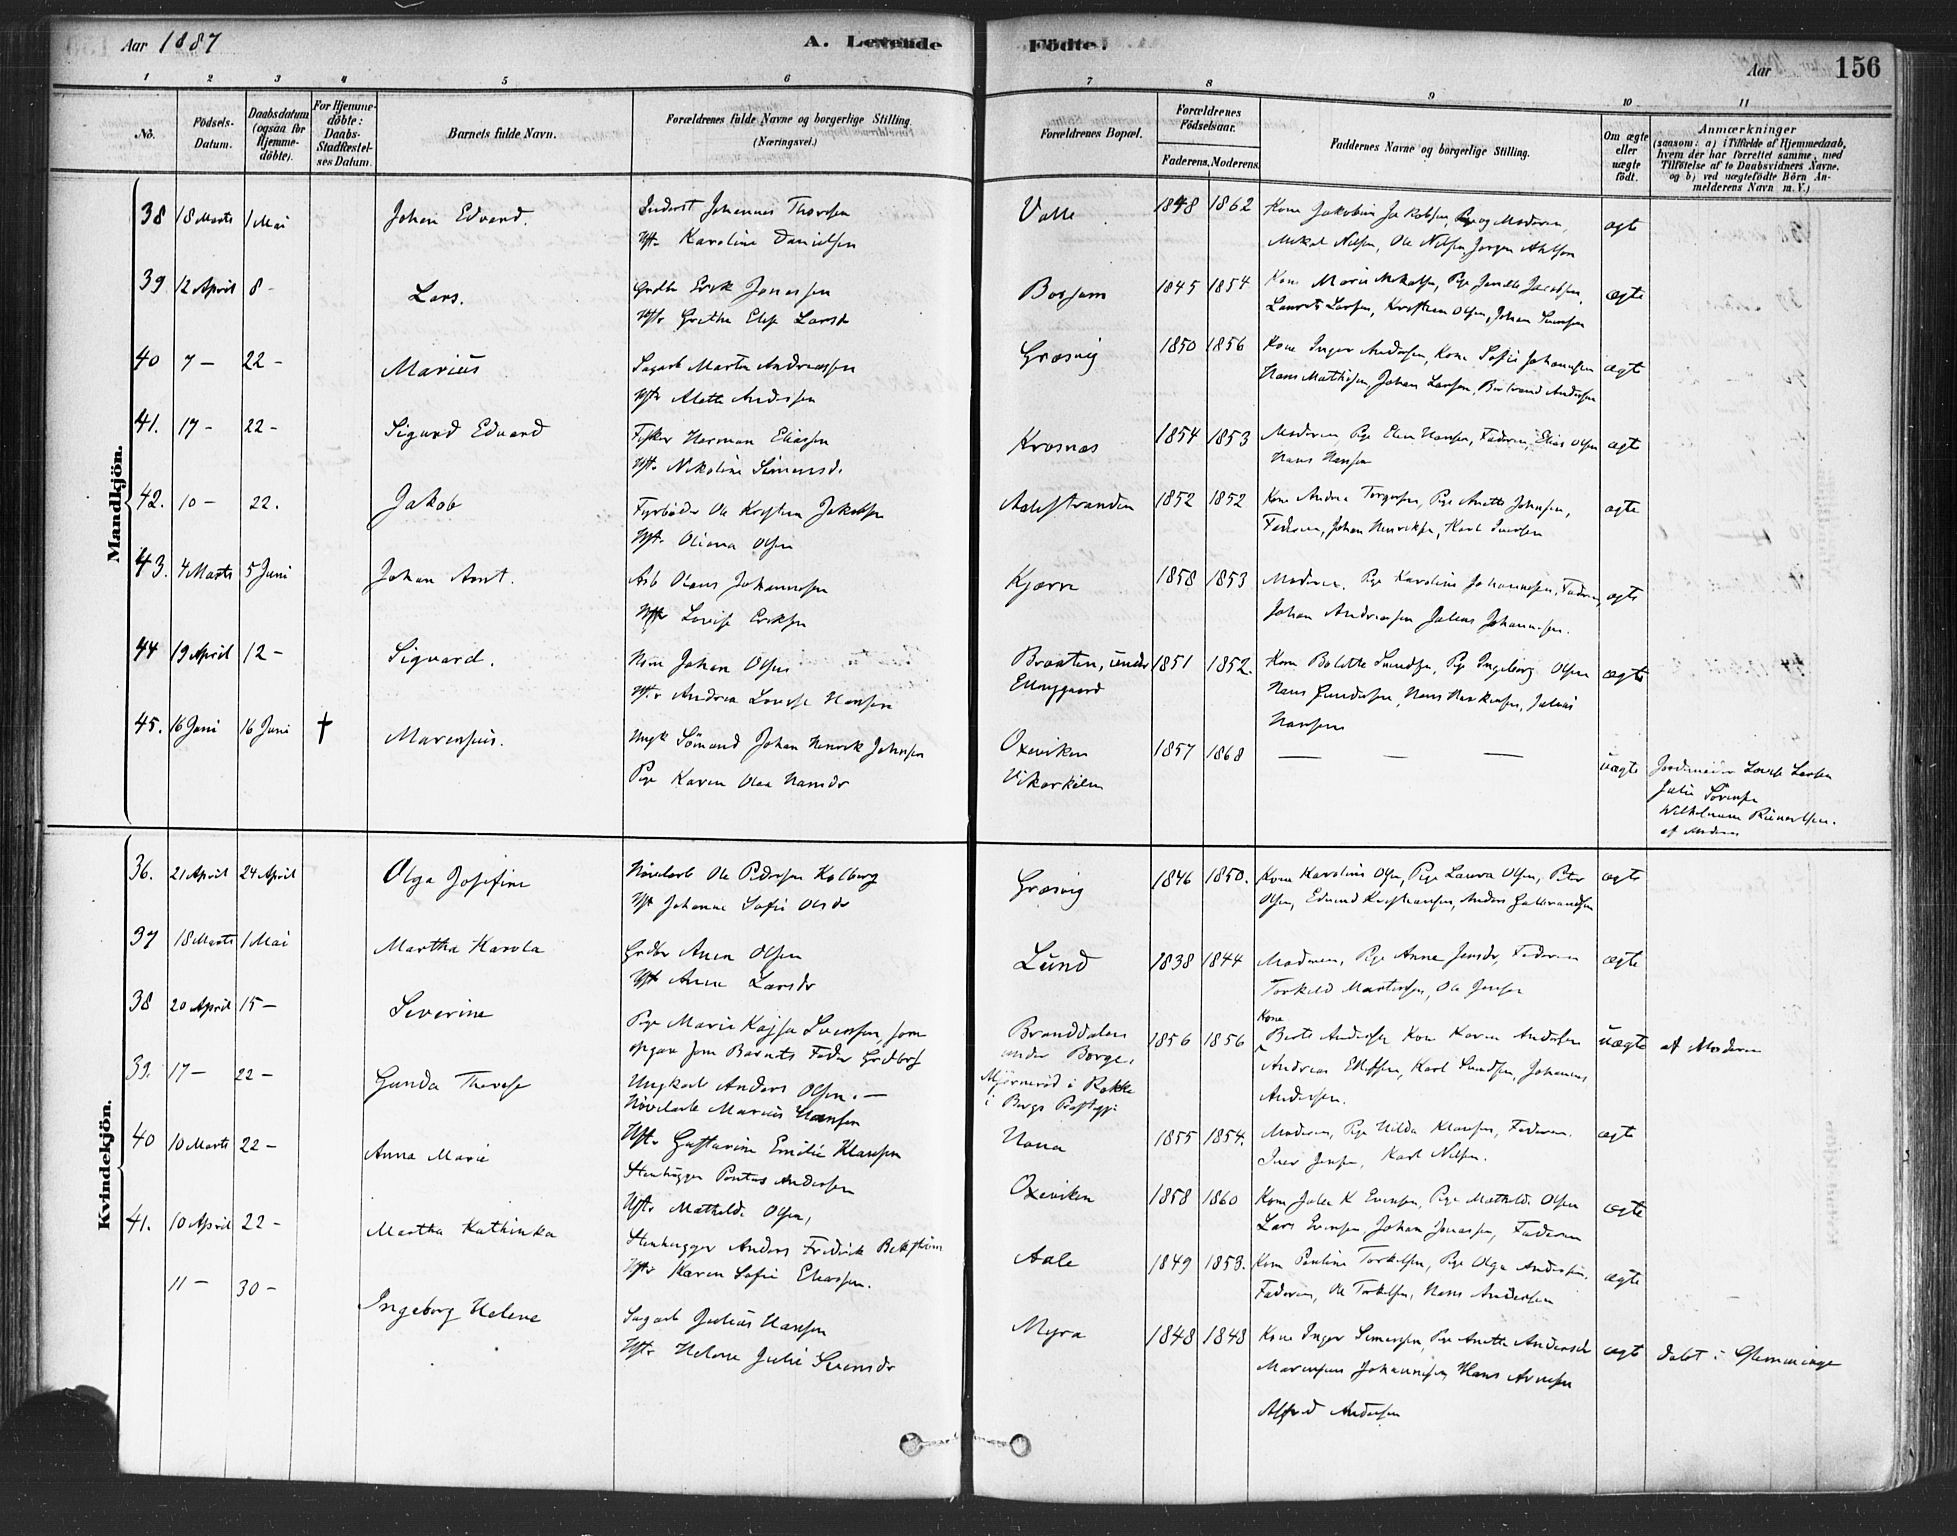 Aar 1887
A. Levende
Födte.
Aar
156
1 2 3 4 5 6 7 8 9 10 11
No.
Födsels-Datum.
Daabsdatum (ogsaa for Hjemme-döbte).
For Hjemme-döbte: Daabs-Stadfæstel-ses Datum.
Barnets fulde Navn.
Forældrenes fulde Navne og borgerlige Stilling. (Næringsvei.)
Forældrenes Bopæl.
Forældrenes Födselsaar.
Faderens. Moderens.
Faddernes Navne og borgerlige Stilling.
Om ægte eller uægte födt.
Anmærkninger
(saasom: a) i Tilfælde af Hjemmedaab,
hvem der har forrettet samme, med
Tilföielse af to Daabsvidners Navne,
og b) ved uægtefödte Börn An-
melderens Navn m. V.)
Mandkjön.
38 18 Marts 1 Mai Johan Edvard. Inderst Johannes Thorsen Valle 1848 1862 Kone Jakobine Jakobsen, Moderen, ægte
Hstr. Karoline Danielsen Mikal Nilsen, Ole Nilsen, Jørgen
39 12 April 8 - Lars. Grdbr Erik Jonassen 1845 1854 Kone Marie Mikalsen, Pige Jacobsen, ægte
Hstr Grethe Elise Larsd Laurits Larsen, Kristian Olsen, Johan
40 7 - 22 - Marius Sagarb Martin Andreassen Græsvig 1850 1856 Kone Inger Andersen, Kone Sofie Johannesen ægte
Hstr Mette Andersen Hans Mathisen, Johan Larsen, Andersen
41. 17 - 22 - Sigurd Edvard Fisker Herman Eliassen Krosnæs 1854 1853 Moderen, Pige Elen Hansen, Faderen, Elias Olsen ægte
Hstr. Nikoline Simensd. Hans Hansen
42. 10 - 22. Jakob Fyrbøder Ole Kristian Jakobsen 1852 1852 Kone Andrea Torgersen, Pige Anette Johnsen, ægte
Hstr. Oliana Olsen Faderen, Johan Henriksen, Karl Iversen
43. 4 Marts 5 Juni Johan Arnt. Arb Olaus Johannesen Kjærre 1858 1853 Moderen. Pige Karoline Johannesen, Faderen, ægte
Hstr Lovise Eriksen Johan Andreassen Julius Johannesen.
44 19 April 12 - Sigvard. Johan Olsen Braaten, under 1851 1852. Kone Bolette, Pige Ingeborg Olsen ægte
Hstr Andrea Lovise Hansen Elinggaard Hans Gundersen, Hans, Julius
Hansen
45. 16 Juni 16 Juni † Marensius. Ungk Sømand Johan Henrik Johnsen Oxeviken 1857 1868 — — — uægte Jordemoder Lovise Larsen
Pige Karen Olea Hansdr Vikerkilen Julie Sørensen
Wilhelmine
af Moderen
Kvindekjön.
36. 21 April 24 April Olga Josefine Høvelarb Ole Pedersen Kolberg Græsvig 1846 1850. Kone Karoline Olsen, Pige Laura Olsen, Peter ægte
Hstr Johanne Sofie Olsdr Olsen, Edvard Kristiansen, Anders
37 18 Marts 1 Mai Martha Karola Grdbr Anen Olsen Lund 1838 1844 Moderen, Pige Anne Jensdr, Faderen ægte
Hstr Anne Larsdr Torkild Martinsen, Ole Jensen
38 20 April 15 - Severine Pige Marie Kajsa Svensson, som Branddalen 1856 1856 Kone Berte Andersen Kone Karen Andersen uægte af Moderen
opgav som Barnets Fader Grdbrs under Borge. Andreas Ellefsen, Karl, Johannes
Ungkarl Anders Olsen. — Mjørnerød i Rokke Andersen.
i Berge Præstegj.
39. 17 - 22 - Gunda Therese Høvelarb Marius Hansen Hana 1855 1854. Moderen, Pige Hilda Klausen, Faderen. ægte
Hstr. Gustavine Emilie Klausen Iver Jensen, Karl Nilsen.
40 10 Marts 22 - Anna Marie Stenhugger Pontus Andersen Oxeviken 1858 1860 Kone Julie K Evensen, Pige Mathilde Olsen ægte
Hstr Mathilde Olsen, Lars Evensen Johan Jonassen, Faderen
41. 10 April 22 - Martha Kathinka Stenhugger Anders Fredrik Bekstrøm Aale 1849 1853. Kone Pauline Torkelsen, Pige Olga Andersen, ægte
Hstr Karen Sofie Eliassen. Faderen, Ole Torkelsen, Hans Andersen
11 - 30 - Ingeborg Helene Sagarb Julius Hansen Myra 1848 1848 Kone Inger Simensen, Pige Anette Andersdr ægte døbt i Glemminge
Hstr Helene Julie Svensdr Marensius Johannesen, Hans Arnesen
Alfred Andersen